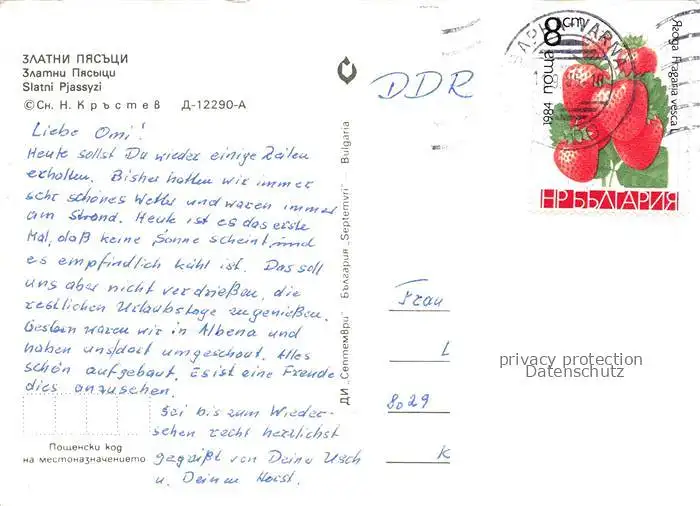 ЗЛАТНИ ПЯСЪЦИ
Златни Пясыци
Slatni Pjassyzi
© Сн. Н. Кръстев Д-12290-А
Liebe Omi!
Heute sollst Du wieder einige Zeilen
erhalten. Bisher hatten wir immer
sehr schönes Wetter und waren immer
am Strand. Heute ist es das erste
Mal, daß keine Sonne scheint und
es empfindlich kühl ist. Das soll
uns aber nicht verdrießen, die
restlichen Urlaubstage zu genießen.
Gestern waren wir in Albena und
haben uns dort umgeschaut. Alles
schön aufgebaut. Es ist eine Freude
dies anzusehen.
Sei bis zum Wieder-
sehen recht herzlichst
gegrüßt von Deiner Usch
u. Deinem Horst.
Пощенски код
на местоназначението
ДИ „Септември" България „Septemvri" - Bulgaria
DDR
8 cm
1984 поща
Ягода Fragaria vesca L
НРБЪЛГАРИЯ
VARNA
Frau
L
8029
K
privacy protection
Datenschutz